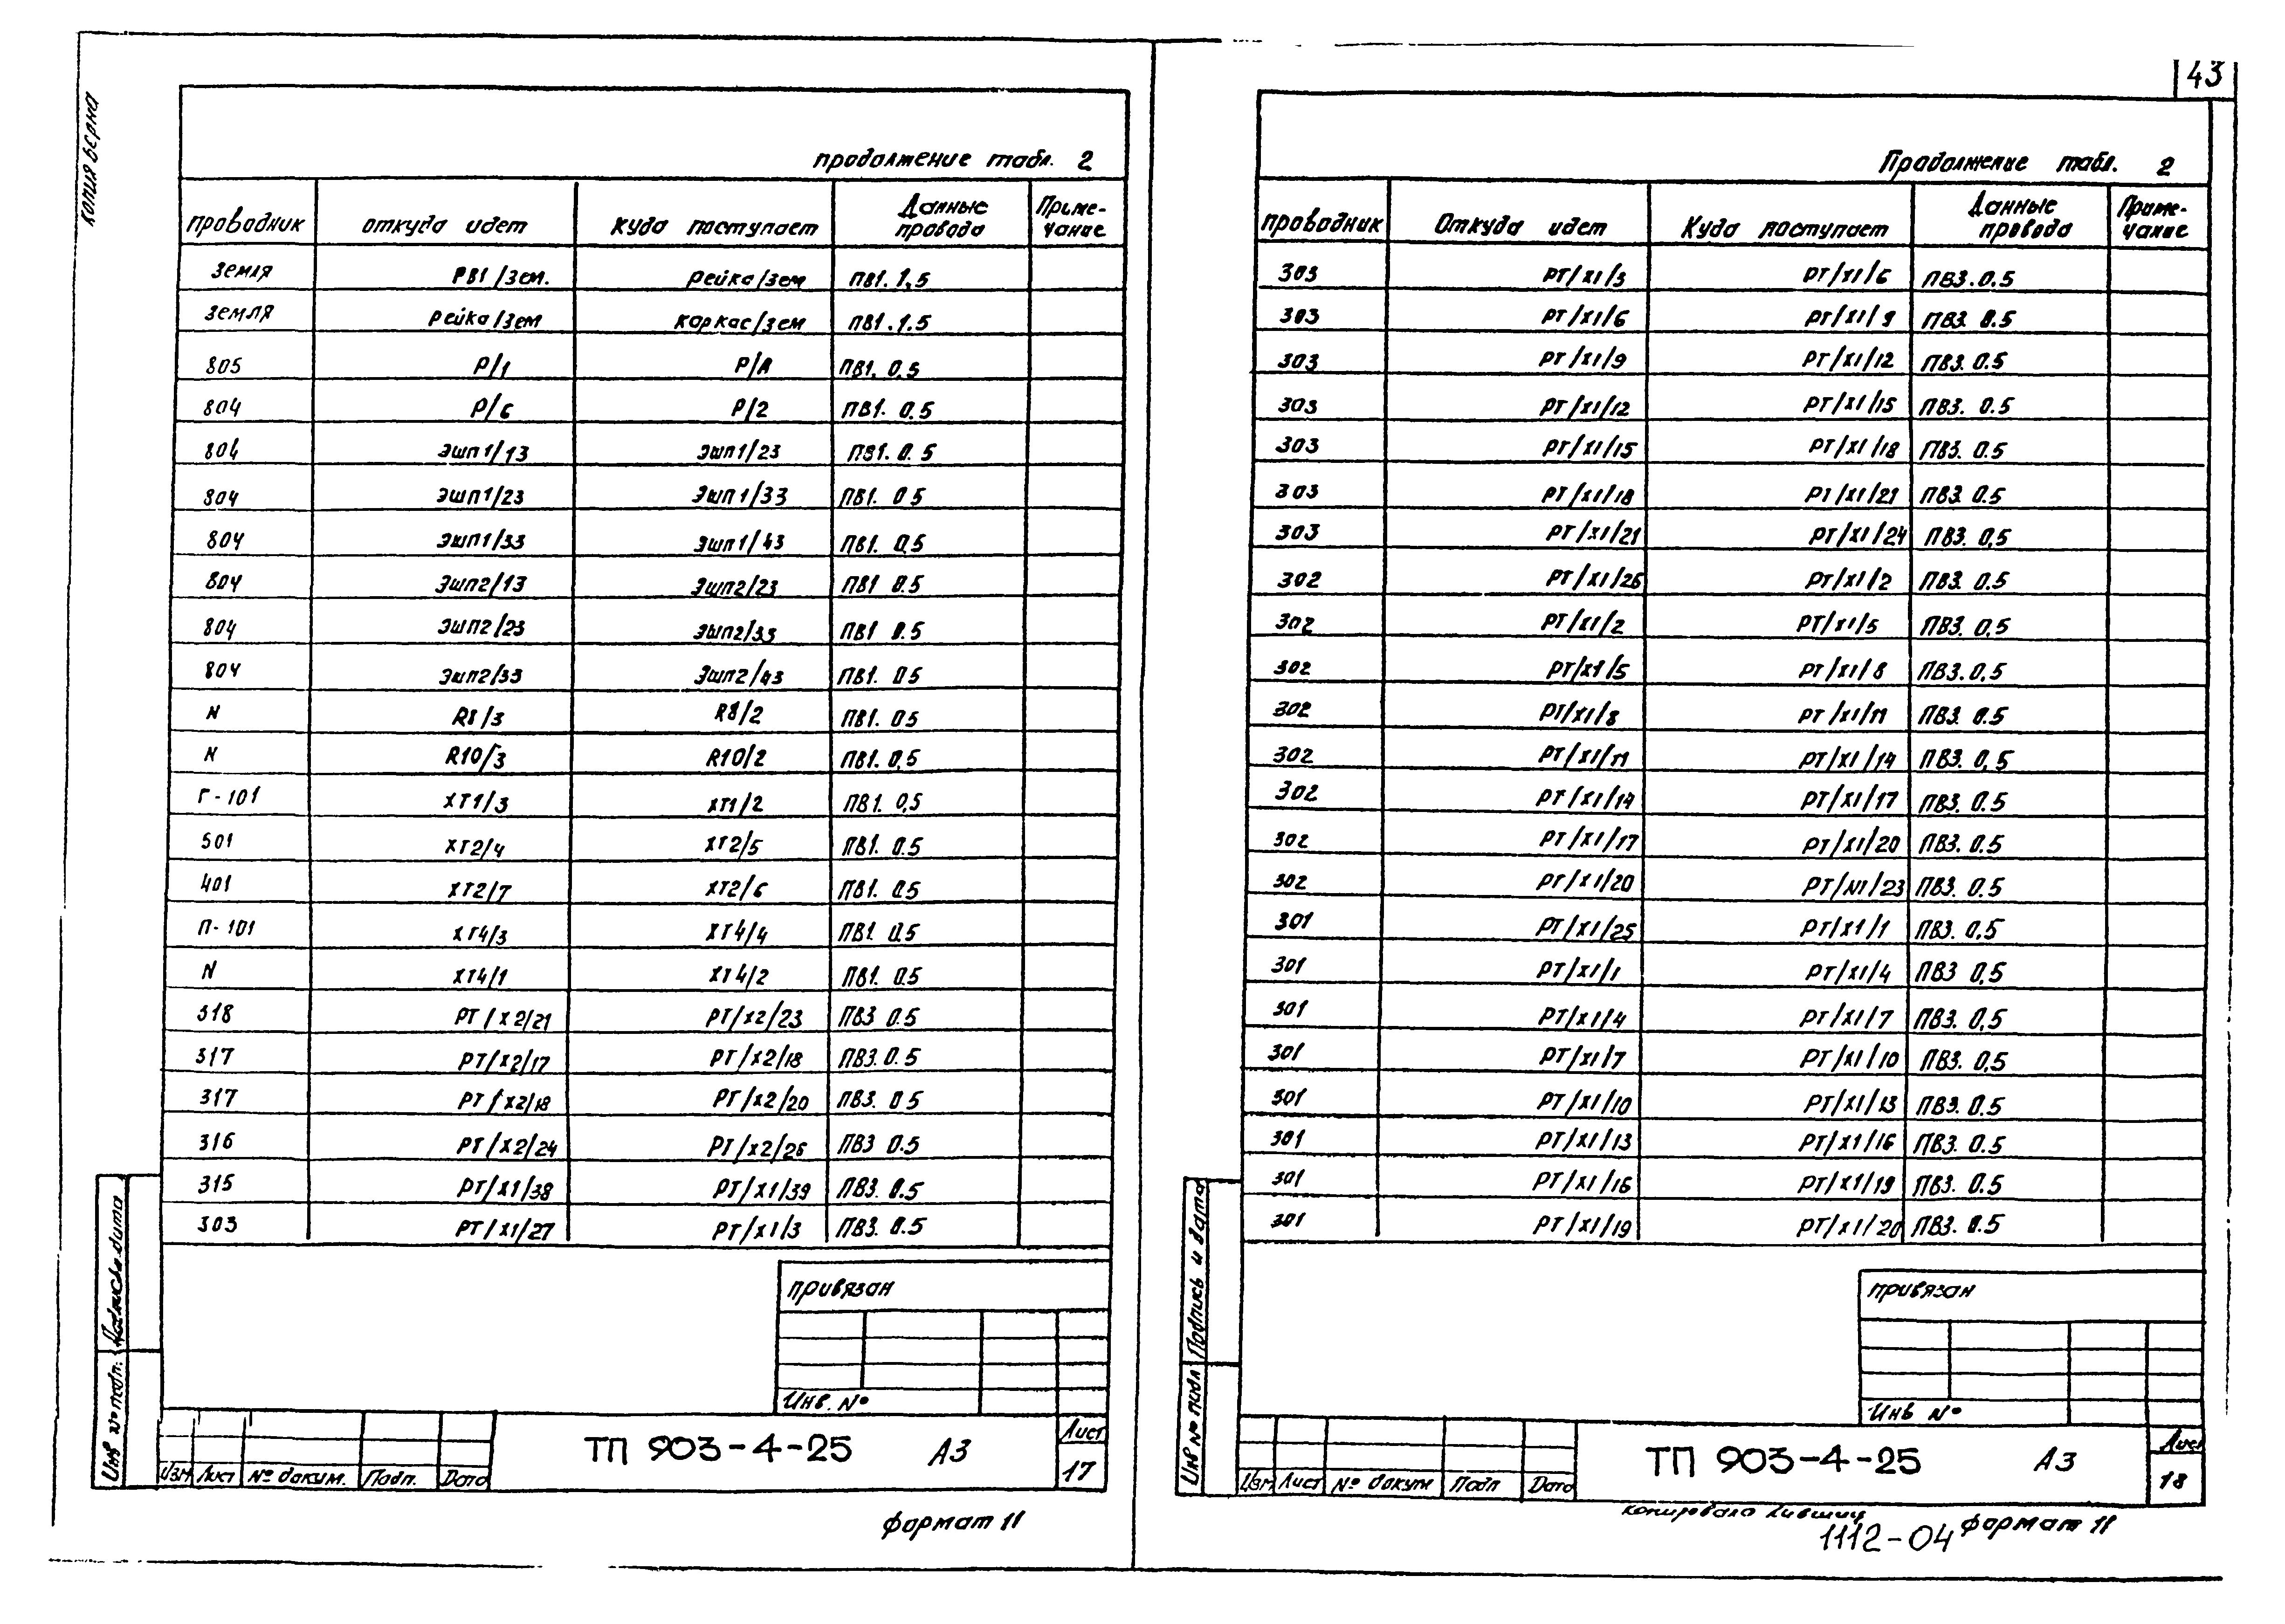 43
копия верна
продолжение табл. 2
проводник откуда идет куда поступает Данные провода Приме-чание
земля РВ1/Зем. рейка/зем ПВ1. 1,5
земля рейка/зем каркас/зем ПВ1. 1.5
805 Р/1 Р/А ПВ1. 0,5
804 Р/6 Р/2 ПВ1. 0.5
804 ЭШП1/13 ЭШП1/23 ПВ1. 0.5
804 ЭШП1/23 ЭШП1/33 ПВ1. 0.5
804 ЭШП1/33 ЭШП1/43 ПВ1. 0,5
804 ЭШП2/13 ЭШП2/23 ПВ1 0.5
804 ЭШП2/23 ЭШП2/33 ПВ1 0.5
804 ЭШП2/33 ЭШП2/43 ПВ1. 0.5
N R8/3 R8/2 ПВ1. 0.5
N R10/3 R10/2 ПВ1. 0,5
Г-101 ХТ1/3 ХТ1/2 ПВ1. 0,5
501 ХТ2/4 ХТ2/5 ПВ1. 0.5
401 ХТ2/7 ХТ2/6 ПВ1. 0.5
П-101 ХТ4/3 ХТ4/4 ПВ1. 0.5
N ХТ4/1 ХТ4/2 ПВ1. 0.5
318 РТ/Х2/21 РТ/Х2/23 ПВ3 0.5
317 РТ/Х2/17 РТ/Х2/18 ПВ3. 0.5
317 РТ/Х2/18 РТ/Х2/20 ПВ3. 0.5
316 РТ/Х2/24 РТ/Х2/26 ПВ3 0.5
315 РТ/Х1/38 РТ/Х1/39 ПВ3. 0.5
303 РТ/Х1/27 РТ/Х1/3 ПВ3. 0.5
привязан
Инв. №
Инв № подп. Подпись и дата
Изм Лист № докум. Подп. Дата
ТП 903-4-25 А3
Лист
17
Формат 11
Продолжение табл. 2
проводник Откуда идет Куда поступает Данные провода Приме-чание
303 РТ/Х1/3 РТ/Х1/6 ПВ3. 0.5
303 РТ/Х1/6 РТ/Х1/9 ПВ3 0.5
303 РТ/Х1/9 РТ/Х1/12 ПВ3. 0.5
303 РТ/Х1/12 РТ/Х1/15 ПВ3. 0.5
303 РТ/Х1/15 РТ/Х1/18 ПВ3. 0.5
303 РТ/Х1/18 РТ/Х1/21 ПВ3. 0.5
303 РТ/Х1/21 РТ/Х1/24 ПВ3. 0,5
302 РТ/Х1/26 РТ/Х1/2 ПВ3. 0.5
302 РТ/Х1/2 РТ/Х1/5 ПВ3. 0,5
302 РТ/Х1/5 РТ/Х1/8 ПВ3. 0,5
302 РТ/Х1/8 РТ/Х1/11 ПВ3. 0.5
302 РТ/Х1/11 РТ/Х1/14 ПВ3. 0,5
302 РТ/Х1/14 РТ/Х1/17 ПВ3. 0.5
302 РТ/Х1/17 РТ/Х1/20 ПВ3. 0.5
302 РТ/Х1/20 РТ/Х1/23 ПВ3. 0.5
301 РТ/Х1/25 РТ/Х1/1 ПВ3. 0,5
301 РТ/Х1/1 РТ/Х1/4 ПВ3 0,5
301 РТ/Х1/4 РТ/Х1/7 ПВ3. 0,5
301 РТ/Х1/7 РТ/Х1/10 ПВ3. 0,5
301 РТ/Х1/10 РТ/Х1/13 ПВ3. 0.5
301 РТ/Х1/13 РТ/Х1/16 ПВ3. 0.5
301 РТ/Х1/16 РТ/Х1/19 ПВ3. 0.5
301 РТ/Х1/19 РТ/Х1/20 ПВ3. 0.5
привязан
Инв №
Инв № подл Подпись и дата
Изм Лист № докум Подп Дата
ТП 903-4-25 А3
Лист
18
копировала
1112-04 Формат 11